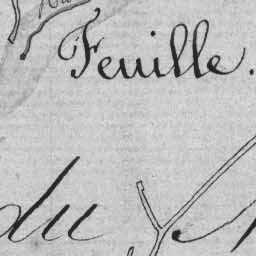 Feuille.
du